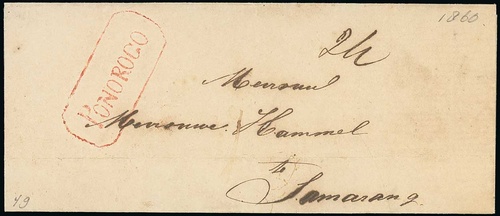 1860.
PONOROGO
Mevrouw
Mevrouwe Hammel
te
Samarang.
49